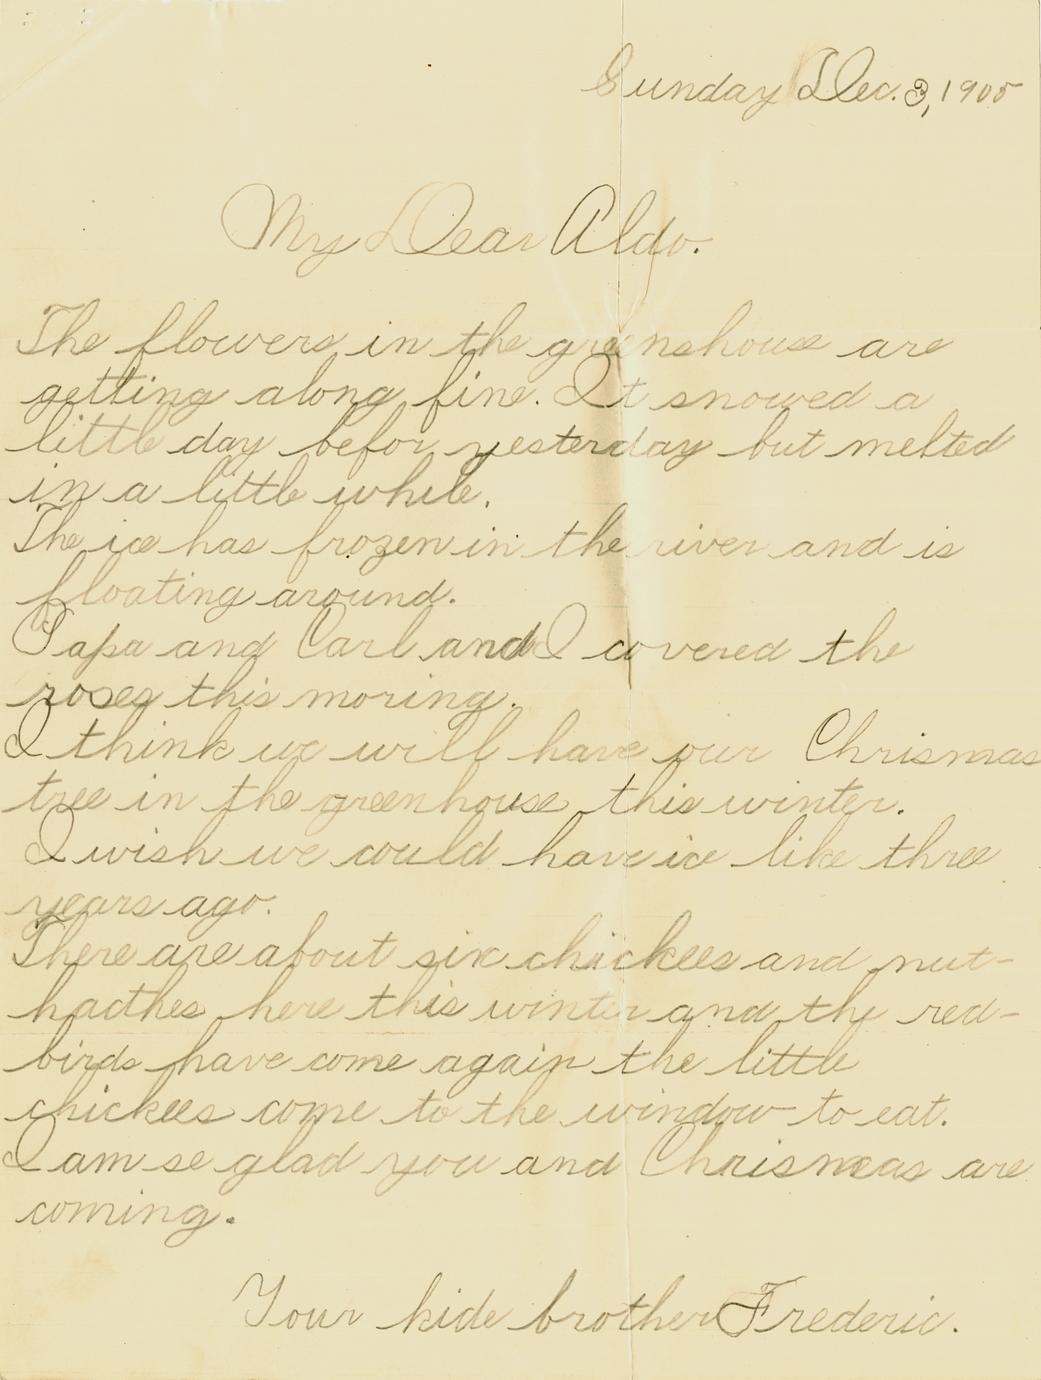 Sunday Dec. 3, 1905
My Dear Aldo.
The flowers in the greenshouse are
getting along fine. It snowed a
little day befor yesterday but melted
in a little while.
The ice has frozen in the river and is
floating around.
Papa and Carl and I covered the
roses this moring.
I think we will have our Chrismas
tree in the greenhouse this winter.
I wish we could have ice like three
years ago.
There are about six chickees and nut-
hacthes here this winter and the red-
birds have come again the little
chickees come to the window to eat.
I am so glad you and Chrismas are
coming.
Your kide brother Frederic.